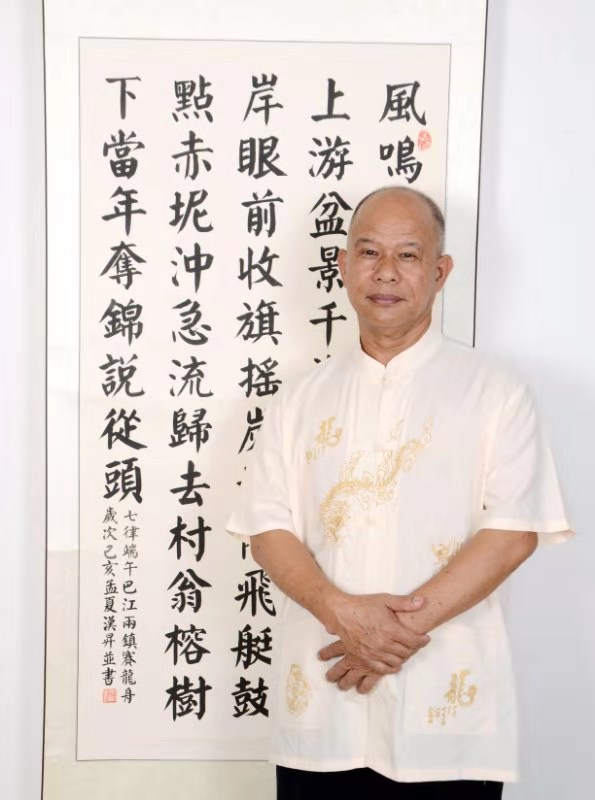 風鳴
上游盆景千
岸眼前收旗搖 飛艇鼓
點赤坭沖急流歸去村翁榕樹
下當年奪錦說從頭
七律端午巴江兩鎮賽龍舟
歲次己亥孟夏漢昇並書
龍
龍